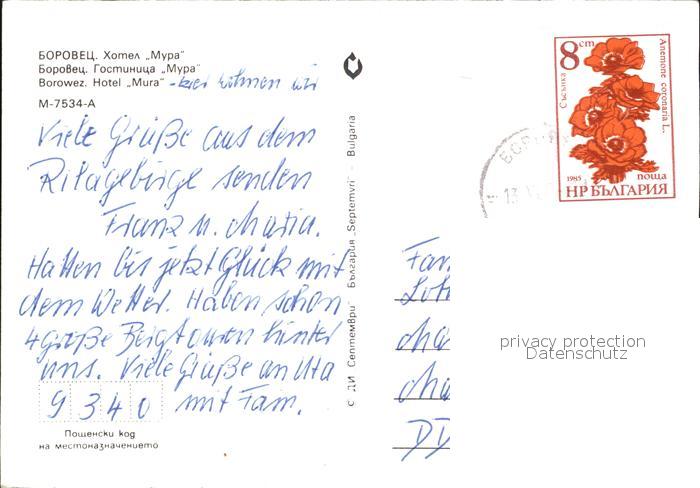 БОРОВЕЦ. Хотел „Мура"
Боровец. Гостиница „Мура"
Borowez. Hotel „Mura" - hier wohnen wir
М-7534-А
Viele Grüße aus dem
Rilagebirge senden
Franz u. Maria.
Hatten bis jetzt Glück mit
dem Wetter. Haben schon
4 große Bergtouren hinter
uns. Viele Grüße an Uta
mit Fam.
9 3 4 0
Пощенски код
на местоназначението
с ДИ Септември България „Septemvri" - Bulgaria
8 ст
Съсънка
Anemone coronaria L.
1985 поща
НР БЪЛГАРИЯ
БОРОВ
13
Fam
privacy protection
Datenschutz
DD